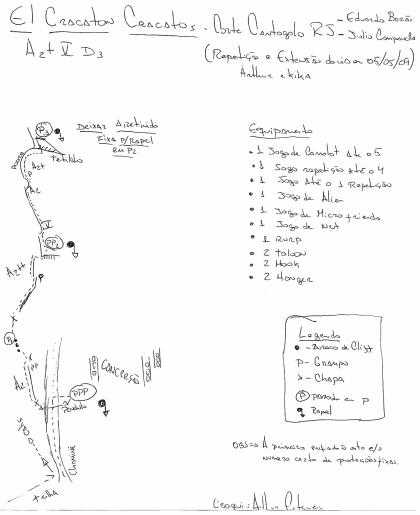 El Cracaton Cracatos - Corte Cantagalo RJ - Eduardo Barão
- Julio Campanella
A2+ V D3
(Repetição e Extensão do dia 05/05/09)
Arthur e Kika
Deixar A retinida
Fixa P/ Rapel
em P2
P3
A2+
P
A2
V
PP2
A2++
P
x
P
x
PP
A2
x
PPP
Pendulo
CONCREÇÃO
Chaminé
trilha
Equipamento
• 1 Jogo de Camalot Até o 5
• 1 Jogo repetição até o 4
• 1 Jogo Até o 1 Repetição
• 1 Jogo de Alien
• 1 Jogo de Micro friends
• 1 Jogo de Nut
• 1 Rurp
• 2 Talon
• 2 Hook
• 2 Hanger
Legenda
• - Buraco de Cliff
P - Grampo
x - Chapa
P parada em P
Rapel
OBS => A primeira enfiada até c/o
numero certo de proteções fixas.
Croqui: